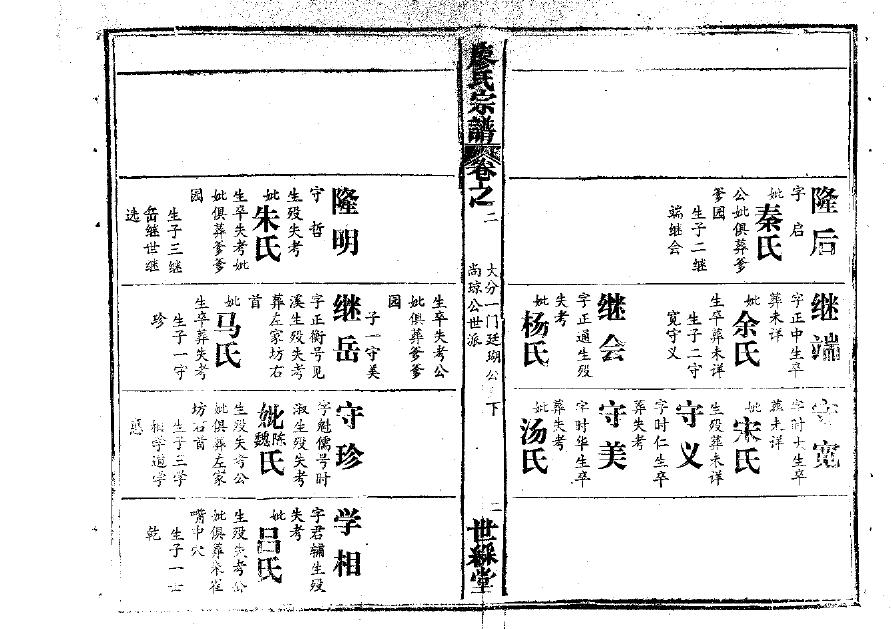 隆后
字启
妣
秦氏
公妣俱葬爹
爹园
生子二继
端继会
继端
字正中生卒
葬未详
妣
余氏
生卒葬未详
生子二守
宽守义
继会
字正通生殁
失考
妣
杨氏
守宽
字时大生卒
葬未详
妣
宋氏
生殁葬未详
守义
字时仁生卒
葬失考
守美
字时华生卒
葬失考
妣
汤氏
廖氏宗谱
卷之
二
大分一门廷瑚公
下
尚琼公世派
二
世綵堂
隆明
守哲
生殁失考
妣
朱氏
生卒失考妣
妣俱葬爹爹
园
生子三继
岳继世继
选
生卒失考公
妣俱葬爹爹
园
子一守美
继岳
字正衡号见
溪生殁失考
葬左家坊右
首
妣
马氏
生卒葬失考
生子一守
珍
守珍
字魁儒号时
淑生殁失考
妣
陈
魏
氏
生殁失考公
妣俱葬左家
坊右首
生子三学
相学道学
学相
字君辅生殁
失考
妣
吕氏
生殁失考公
妣俱葬
嘴中穴
生子一士
乾